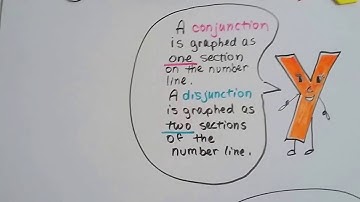 A conjunction
is graphed as
one section
on the number
line.
A disjunction
is graphed as
two sections
of the
number line.
Y